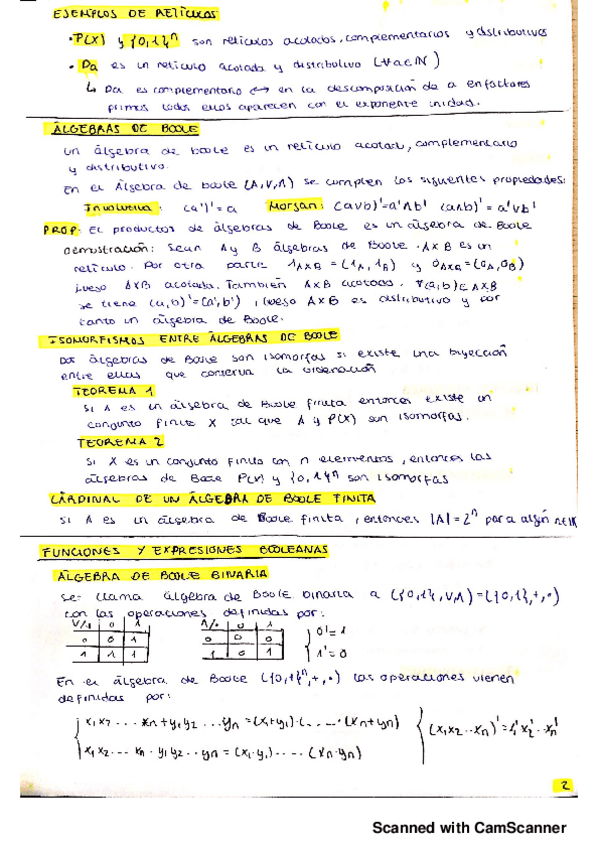 EJEMPLOS DE RETÍCULOS
• P(X) y {0,1}ⁿ son retículos acotados, complementarios y distributivos
• Da es un retículo acotado y distributivo (∀a∈ℕ)
↳ Da es complementario ↔ en la descomposición de a en factores
primos todos ellos aparecen con el exponente unidad.
ÁLGEBRAS DE BOOLE
Un álgebra de boole es un retículo acotado, complementario
y distributivo.
En el Álgebra de boole (A,∨,∧) se cumplen las siguientes propiedades:
Involutiva: (a')'=a Morgan: (a∨b)'=a'∧b' (a∧b)'=a'∨b'
PROP: El productos de álgebras de Boole es un álgebra de Boole
Demostración: Sean A y B álgebras de Boole. A×B es un
retículo. Por otra parte 1A×B = (1A, 1B) y 0A×B = (0A, 0B)
luego A×B acotada. También A×B acotado. ∀(a,b)∈A×B
se tiene (a,b)'=(a',b'), luego A×B es distributivo y por
tanto un álgebra de Boole.
ISOMORFISMOS ENTRE ÁLGEBRAS DE BOOLE
Dos álgebras de Boole son isomorfas si existe una biyección
entre ellas que conserva la ordenación
TEOREMA 1
Si A es un álgebra de Boole finita entonces existe un
conjunto finito X tal que A y P(X) son isomorfas.
TEOREMA 2
Si X es un conjunto finito con n elementos, entonces las
álgebras de Boole P(X) y {0,1}ⁿ son isomorfas
CARDINAL DE UN ÁLGEBRA DE BOOLE FINITA
Si A es un álgebra de Boole finita, entonces |A|=2ⁿ para algún n∈ℕ
FUNCIONES Y EXPRESIONES BOOLEANAS
ÁLGEBRA DE BOOLE BINARIA
Se llama álgebra de Boole binaria a ({0,1},∨,∧)=({0,1},+,·)
con las operaciones definidas por:
∨/+ 0 1 ∧/· 0 1 0'=1
0 0 1 0 0 0 1'=0
1 1 1 1 0 1
En el álgebra de Boole ({0,1}ⁿ,+,·) las operaciones vienen
definidas por:
x₁x₂...xn+y₁y₂...yn=(x₁+y₁)·(...·(xn+yn) (x₁x₂...xn)'=x₁'x₂'...xn'
x₁x₂...xn·y₁y₂...yn=(x₁·y₁)·...·(xn·yn)
2
Scanned with CamScanner